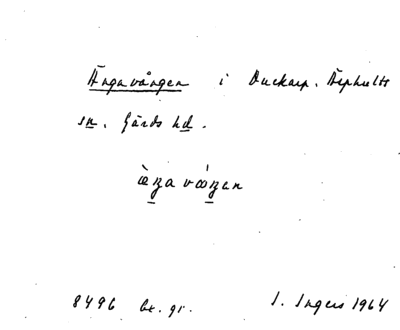 Ängavången i Duckarp. Äsphults
sn. Gärds hd.
æ̀ŋa våŋen
8496 bx. gr. I. Ingers 1964